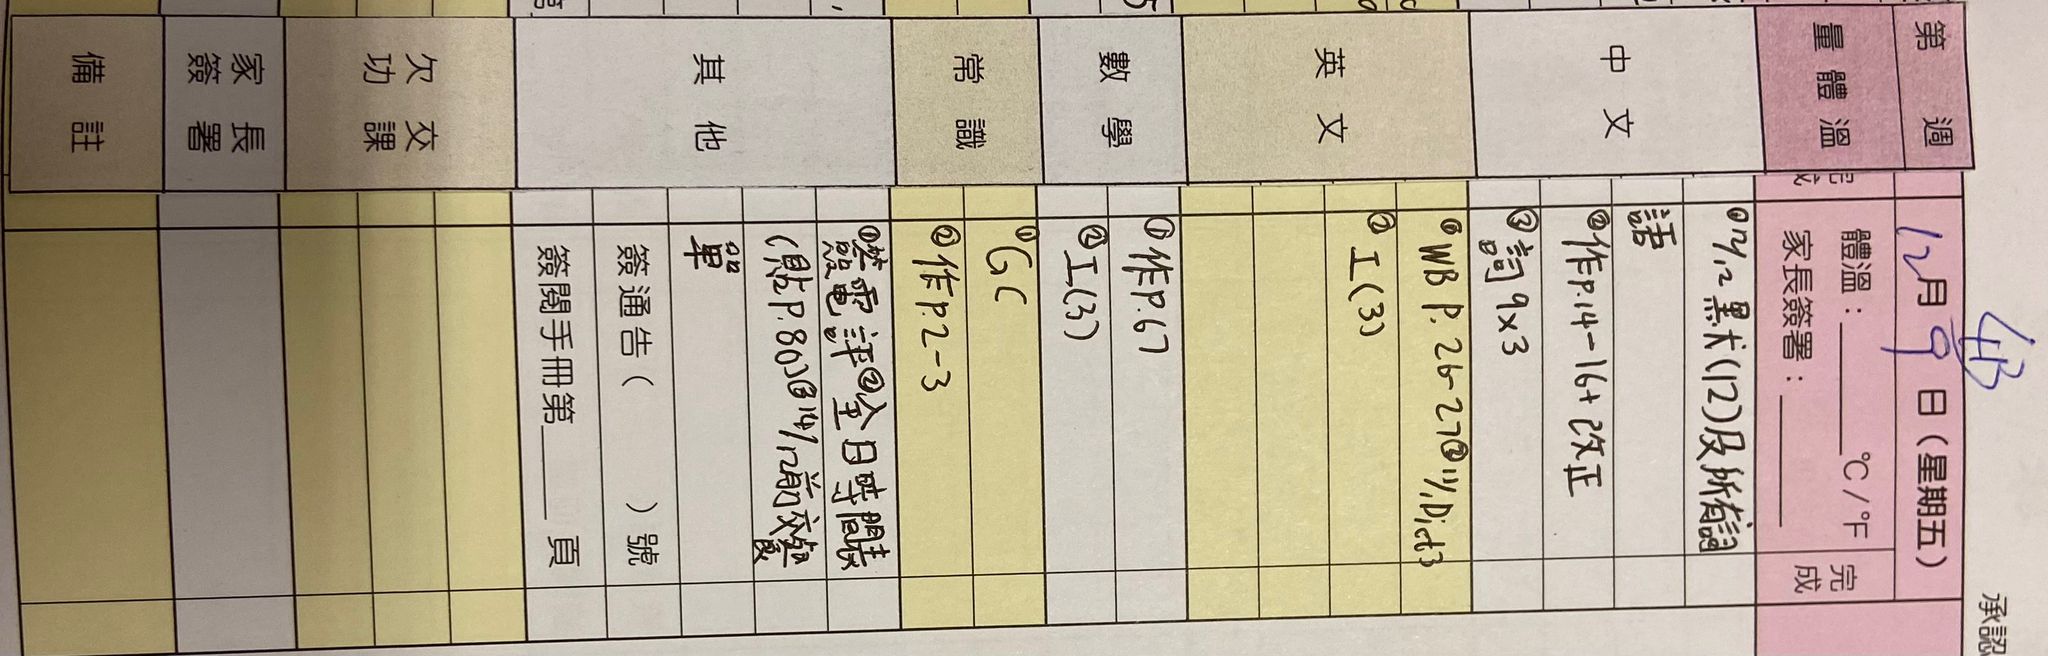 4B
承認
第 週
12月9日(星期五)
量體溫
體溫：______°C/°F
家長簽署：______
完成
中文
①12/12 黑犬(12)及所有詞
語
②作P.14-16+改正
③詞9x3
英文
①WB P.26-27 ②1/1 Dict3
②I(3)
數學
①作P.67
②I(3)
常識
①GC
②作P.2-3
其他
全日時間表
(貼P.80)③14/12前交
單
簽通告( )號
簽閱手冊第____頁
欠交功課
家長簽署
備註